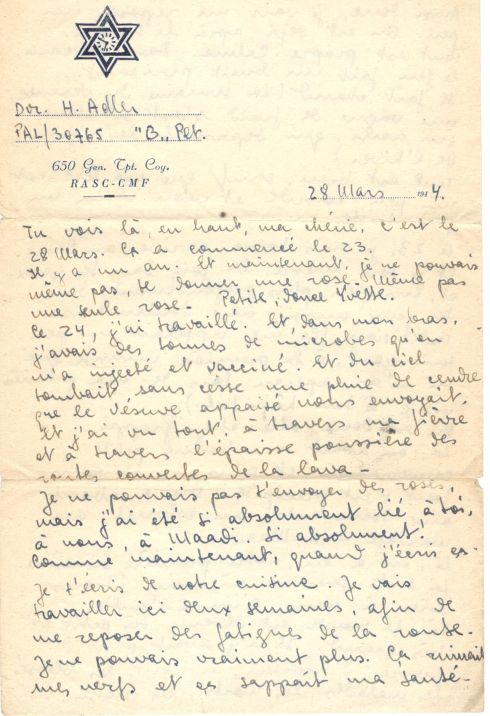 Dvr. H. Adler
PAL/30765 "B„ Plt.
650 Gen. Tpt. Coy.
RASC-CMF
28 Mars 1944.
Tu vois là, en haut, ma chérie, c'est le
28 Mars. Ça a commencé le 23.
Il y a un an. Et maintenant, je ne pouvais
même pas, te donner une rose. Même pas
une seule rose. Petite, douce Yvette.
Ce 24, j'ai travaillé. Et, dans mon bras,
j'avais des tonnes de microbes qu'on
m'a injecté et vacciné. Et du ciel
tombait, sans cesse une pluie de cendre
que le Vesuve appaisé nous envoyait.
Et j'ai vu tout, à travers ma fièvre
et à travers l'épaisse poussière des
routes couvertes de la lava -
Je ne pouvais pas t'envoyer des roses,
mais j'ai été si absolument lié à toi,
à nous, à Maadi. Si absolument!
Comme maintenant, quand j'écris ça.
Je t'écris de notre cuisine. Je vais
travailler ici deux semaines, afin de
me reposer des fatigues de la route.
Je ne pouvais vraiment plus. Ça ruinait
mes nerfs et ça sappait ma santé.